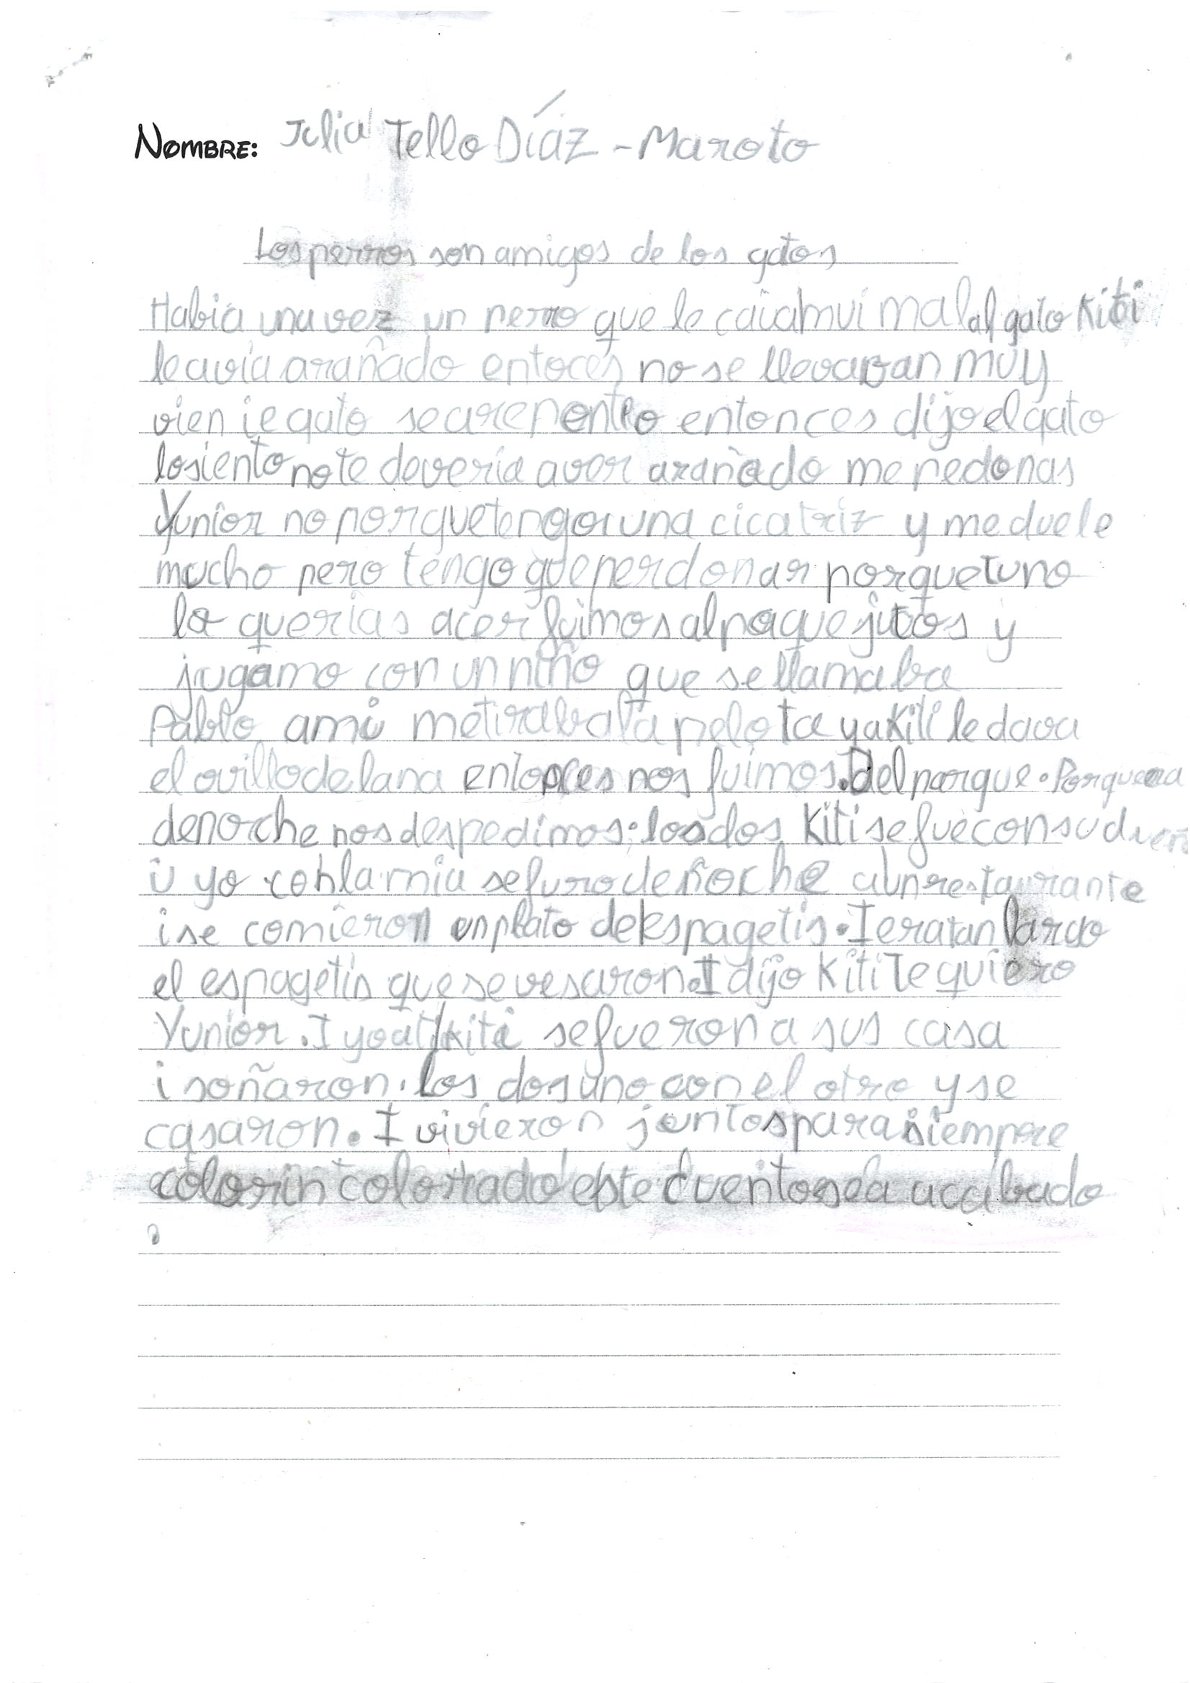 NOMBRE: Julia Tello Díaz - Maroto
Los perros son amigos de los gatos
Había una vez un perro que le caía mui mal al gato Kiti
le avía arañado entoces no se llevavan muy
vien i e gato se arepentio entonces dijo el gato
lo siento no te deveria aver arañado me pedonas
Yunior no porque tengo una cicatriz y me duele
mucho pero tengo que perdonar porque tu no
lo querias acer fuimos al paque jutos y
jugamo con un niño que se llamaba
Pablo a mi me tiraba la pelota y a Kiti le dava
el ovillo de lana entonces nos fuimos. Del parque. Porque era
de noche nos despedimos. los dos Kiti se fue con su dueñ
i yo con la mia se furo de noche a un restaurante
i se comieron un plato de espagetis. I era tan largo
el espagetis que se vesaron. I dijo Kiti Te quiero
Yunior. I yo a ti kiti se fueron a sus casa
i soñaron. los dos uno con el otro y se
casaron. I vivieron juntos para siempre
colorin colorado este cuento sea acabado